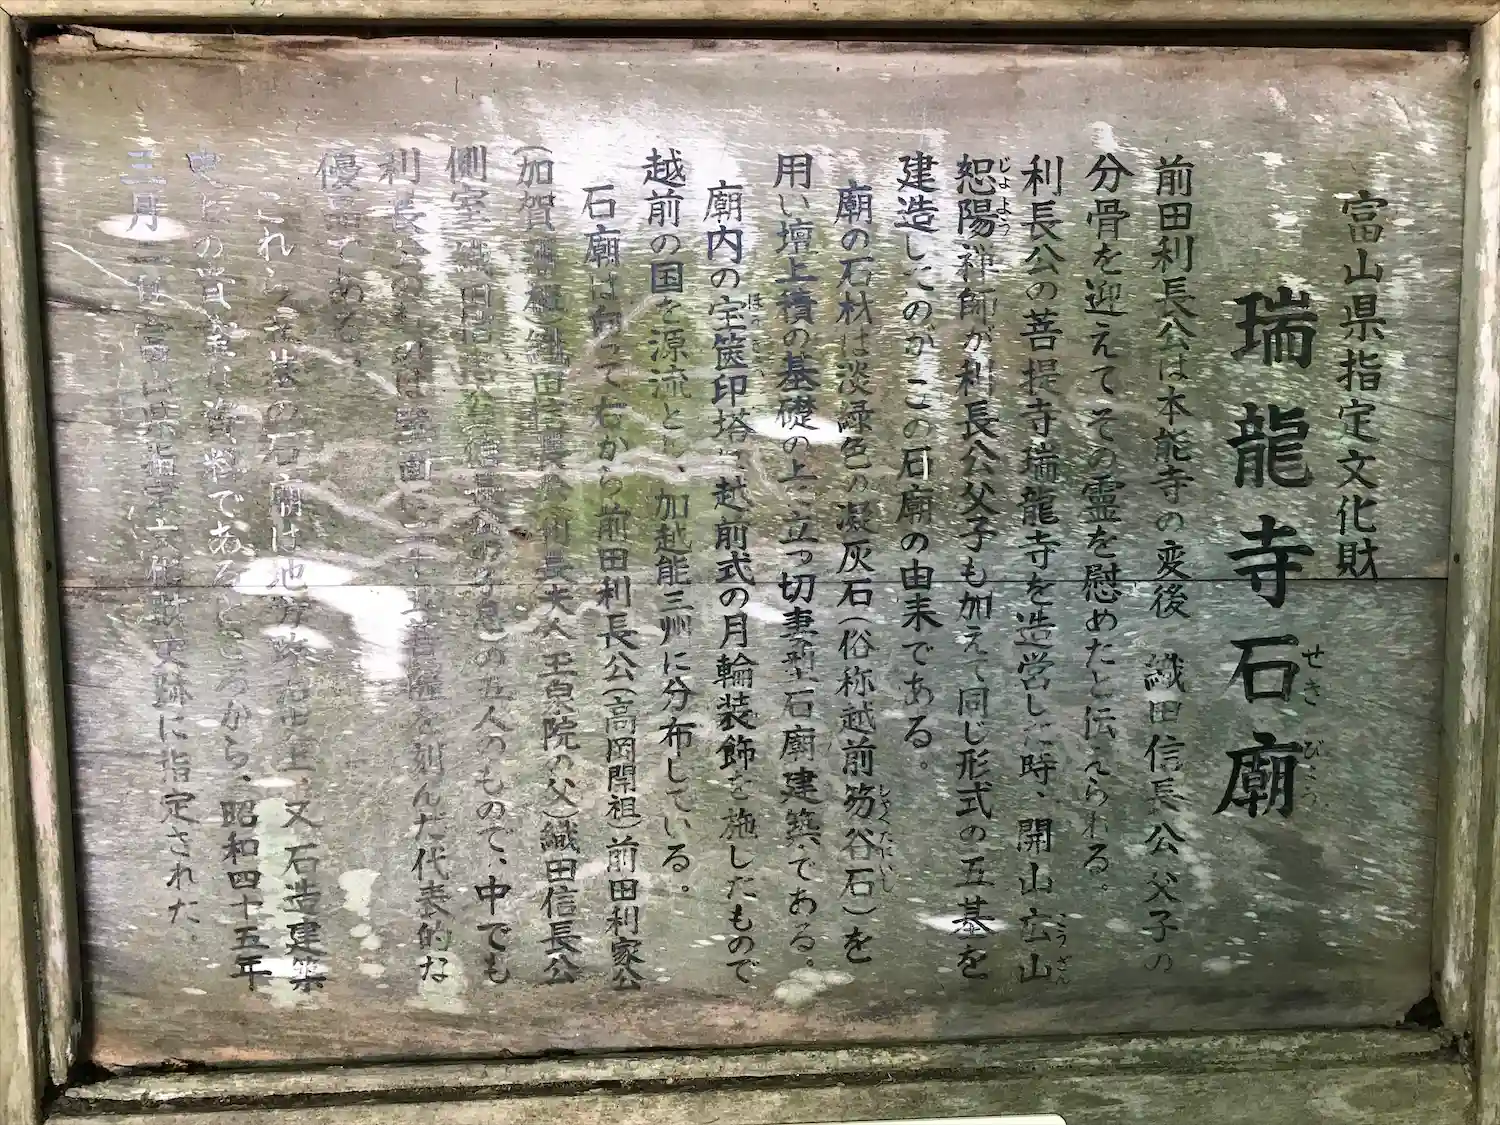 富山県指定文化財
瑞龍寺石廟
せきびょう
前田利長公は本能寺の変後 織田信長公父子の
分骨を迎えてその霊を慰めたと伝えられる。
利長公の菩提寺瑞龍寺を造営した時、開山広山
こうざん
恕陽禅師が利長公父子も加えて同じ形式の五基を
じょよう
建造したのがこの石廟の由来である。
廟の石材は淡緑色の凝灰石(俗称越前笏谷石)を
しゃくだにいし
用い壇上積の基礎の上に立つ切妻型石廟建築である。
廟内の宝篋印塔は越前式の月輪装飾を施したもので
越前の国を源流とし、加越能三州に分布している。
石廟は向って右から前田利長公(高岡開祖)前田利家公
(加賀藩祖)織田信長公 利長夫人玉泉院の父)織田信長公
側室 織田信忠公(信長公の子息)の五人のもので、中でも
利長公の は壁面に二十五菩薩を刻んだ代表的な
優品である。
これら一連の石廟は地方政治史上、又石造建築
史上の貴重な資料であるところから、昭和四十五年
三月 富山県指定文化財史跡に指定された。